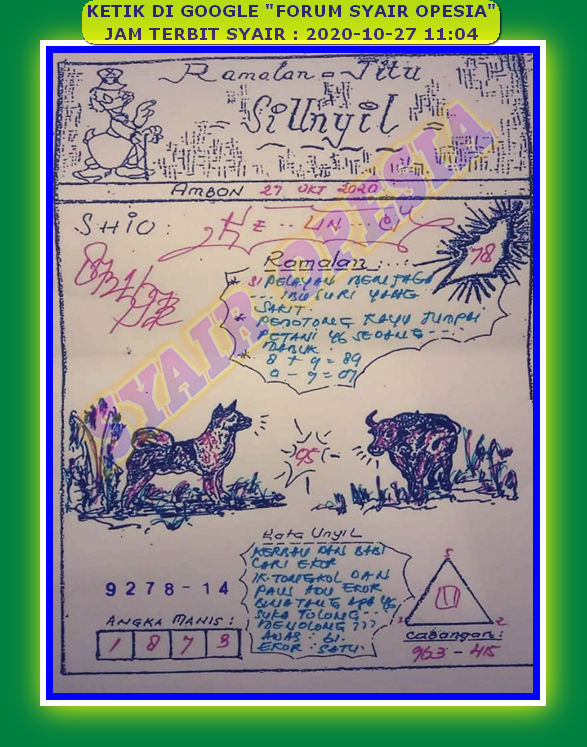 KETIK DI GOOGLE "FORUM SYAIR OPESIA"
JAM TERBIT SYAIR : 2020-10-27 11:04
Ramalan = Jitu
Si Unyil
AMBON 27 OKT 2020
SHIO:
78
Ramalan
* SI PELAYAN MENJAGA
IBU SURI YANG
SAKIT.
* PEMOTONG KAYU JUMPAI
PETANI YG SEDANG
MABUK.
* 8 + 9 = 89
0 - 7 = 07
SYAIR OPESIA
95
Kata Unyil
KERBAU DAN BABI
CARI EKOR
IK. TONGKOL DAN
PAUS ADU EKOR
BINATANG APA YG
SUKA TOLONG
MENOLONG ???
AWAS : 61.
EKOR : SATU.
9278-14
ANGKA MANIS :
1 8 7 3
5
2
Cabangan :
963 - 415